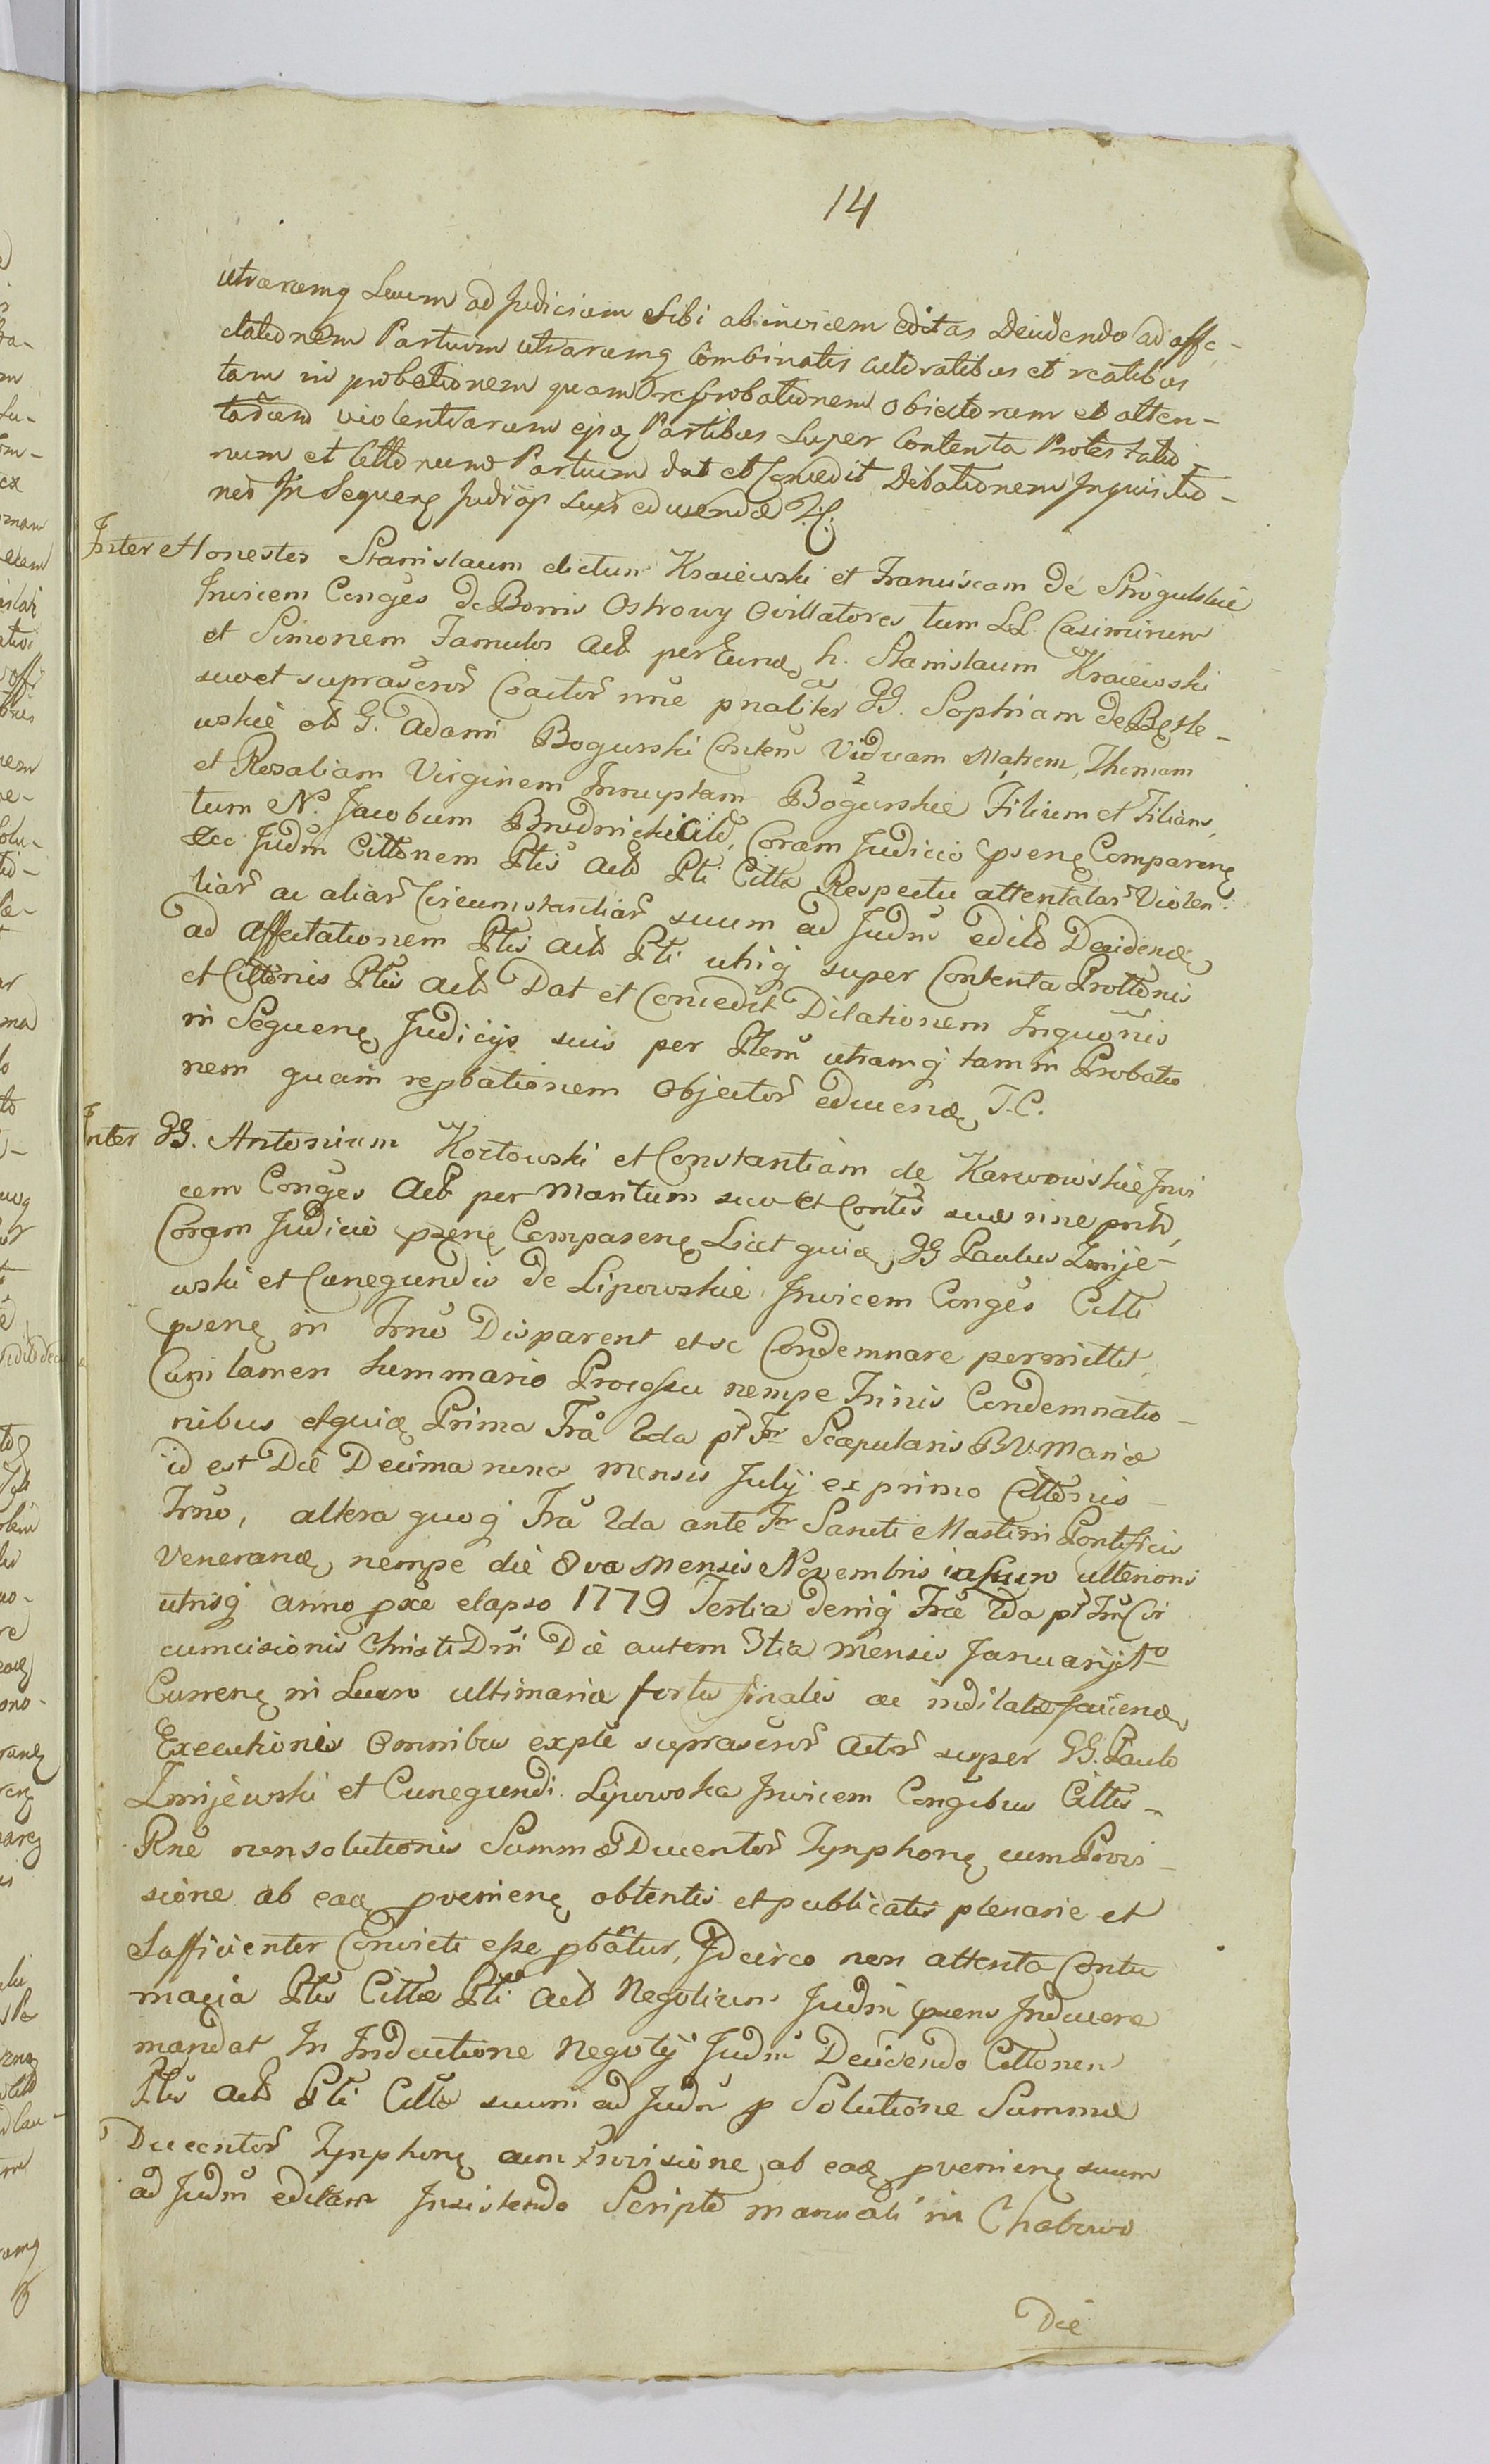 14
utraramq Suum ad Judicium Sibi abinvicem editas Decidendo ad affe-
ctationem Partium utrarumq Combinatis Actoratibus et reatibus
tam in probationem quam reprobationem objectorum et atten-
tarum violentiarum ejsq Partibus Super Contenta Protestatio
num et Cittonum Partium dat et Concedit Dilationem Inquisitio-
nis In Sequenq Judiijs Suis educendae T.C.
Inter Honestos Stanislaum dictum Kraiewski et Franciscam de Strogulskie
Invicem Conges de Bonis Ostrowy Ovillatores tum LL. Casimirum
et Simonem Famulos Act per Eund h. Stanislaum Kraiewski
suo et suprascror Coactor nne pnaliter GG. Sophiam de Bethle-
wskie ol G. Adami Bogurski Contem Viduam Matrem, Thomam
et Rosaliam Virginem Innuptam Bogurskie Filium et Filiam,
tum N. Jacobum Brudnicki Citt, Coram Judicio psenq Comparenq
Sic Judm Cittonem Ptis Act Pti Citta Respectu attentatar Violen
tiar ac aliar Circumstantiar suum ad Judm edito Decidend
ad Affectationem Ptis Act Pti utriq super Contenta Prottonis
et Cittonis Ptis Act Dat et Concedit Dilationem Inquonis
in Sequenq Judicijs suis per Ptem utramq tam in Probatio
nem quam repbationem Objector educend T.C.
Inter GG. Antonium Kozlowski et Constantiam de Karwowskie Invi
cem Conges Act per Maritum suo et Contis suae nne pnt,
Coram Judicio psenq Comparenq Licet quia GG Paulus Zmije-
wski et Cunegundis de Lipowskie Invicem Conges Citti
psenq in Trno Disparent et se Condemnare permittt,
Cum tamen summario Processu nempe Trinis Condemnatio-
nibus et quia Prima Fra 2da pt Fr Scapularis B.V. Mariae
id est Die Decima nona Mensis Julij ex primo Cittonis
Trno, altera quoq Fra 2da ante Fr Sancti Martini Pontificis
Venerand nempe die 8va Mensis Novembris in Lucro ulteriori
utrisq anno pxe elapso 1779 Tertia deniq Frae 2da pt Fm Cir
cumcisionis Christi Dni Die autem 3tia Mensis Januarij Ao
Currenq in Lucro ultimariae fortis finalis ac indilatae faciend
Executionis Omnibus expte suprascror Actor super GG. Paulo
Zmijewski et Cunegundi Lipowska Invicem Congibus Cittis
Rne nonsolutionis Summae Ducentor Tynphonq cum Provi-
sione ab eaq pvenienq obtentis et publicatis plenarie et
Sufficienter Convicti esse pbantur, Idcirco non attenta Contu
macia Ptis Cittae Ptis Act Negotium Judm psens Inducere
mandat In Inductione Negotij Judm Decidendo Cittonem
Ptis Act Pti Citta suum ad Judm p Solutione Summae
Ducentor Tynphonq cum Provisione ab eaq pvenienq suum
ad Judm editam Insistendo Scripto manuali in Chabowo
Die